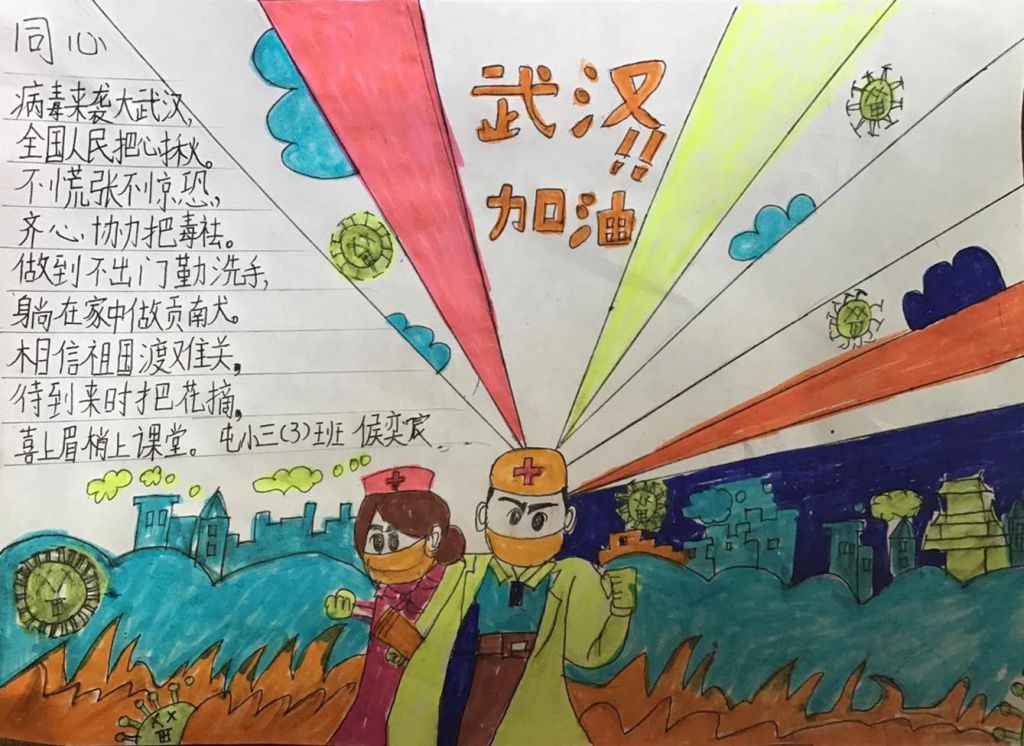 同心
病毒来袭大武汉,
全国人民把心揪。
不慌张不惊恐,
齐心协力把毒祛。
做到不出门勤洗手,
躺在家中做贡南犬。
相信祖国渡难关,
待到来时把花摘,
喜上眉梢上课堂。屯小三(3)班 侯奕宸
武汉!!
加油